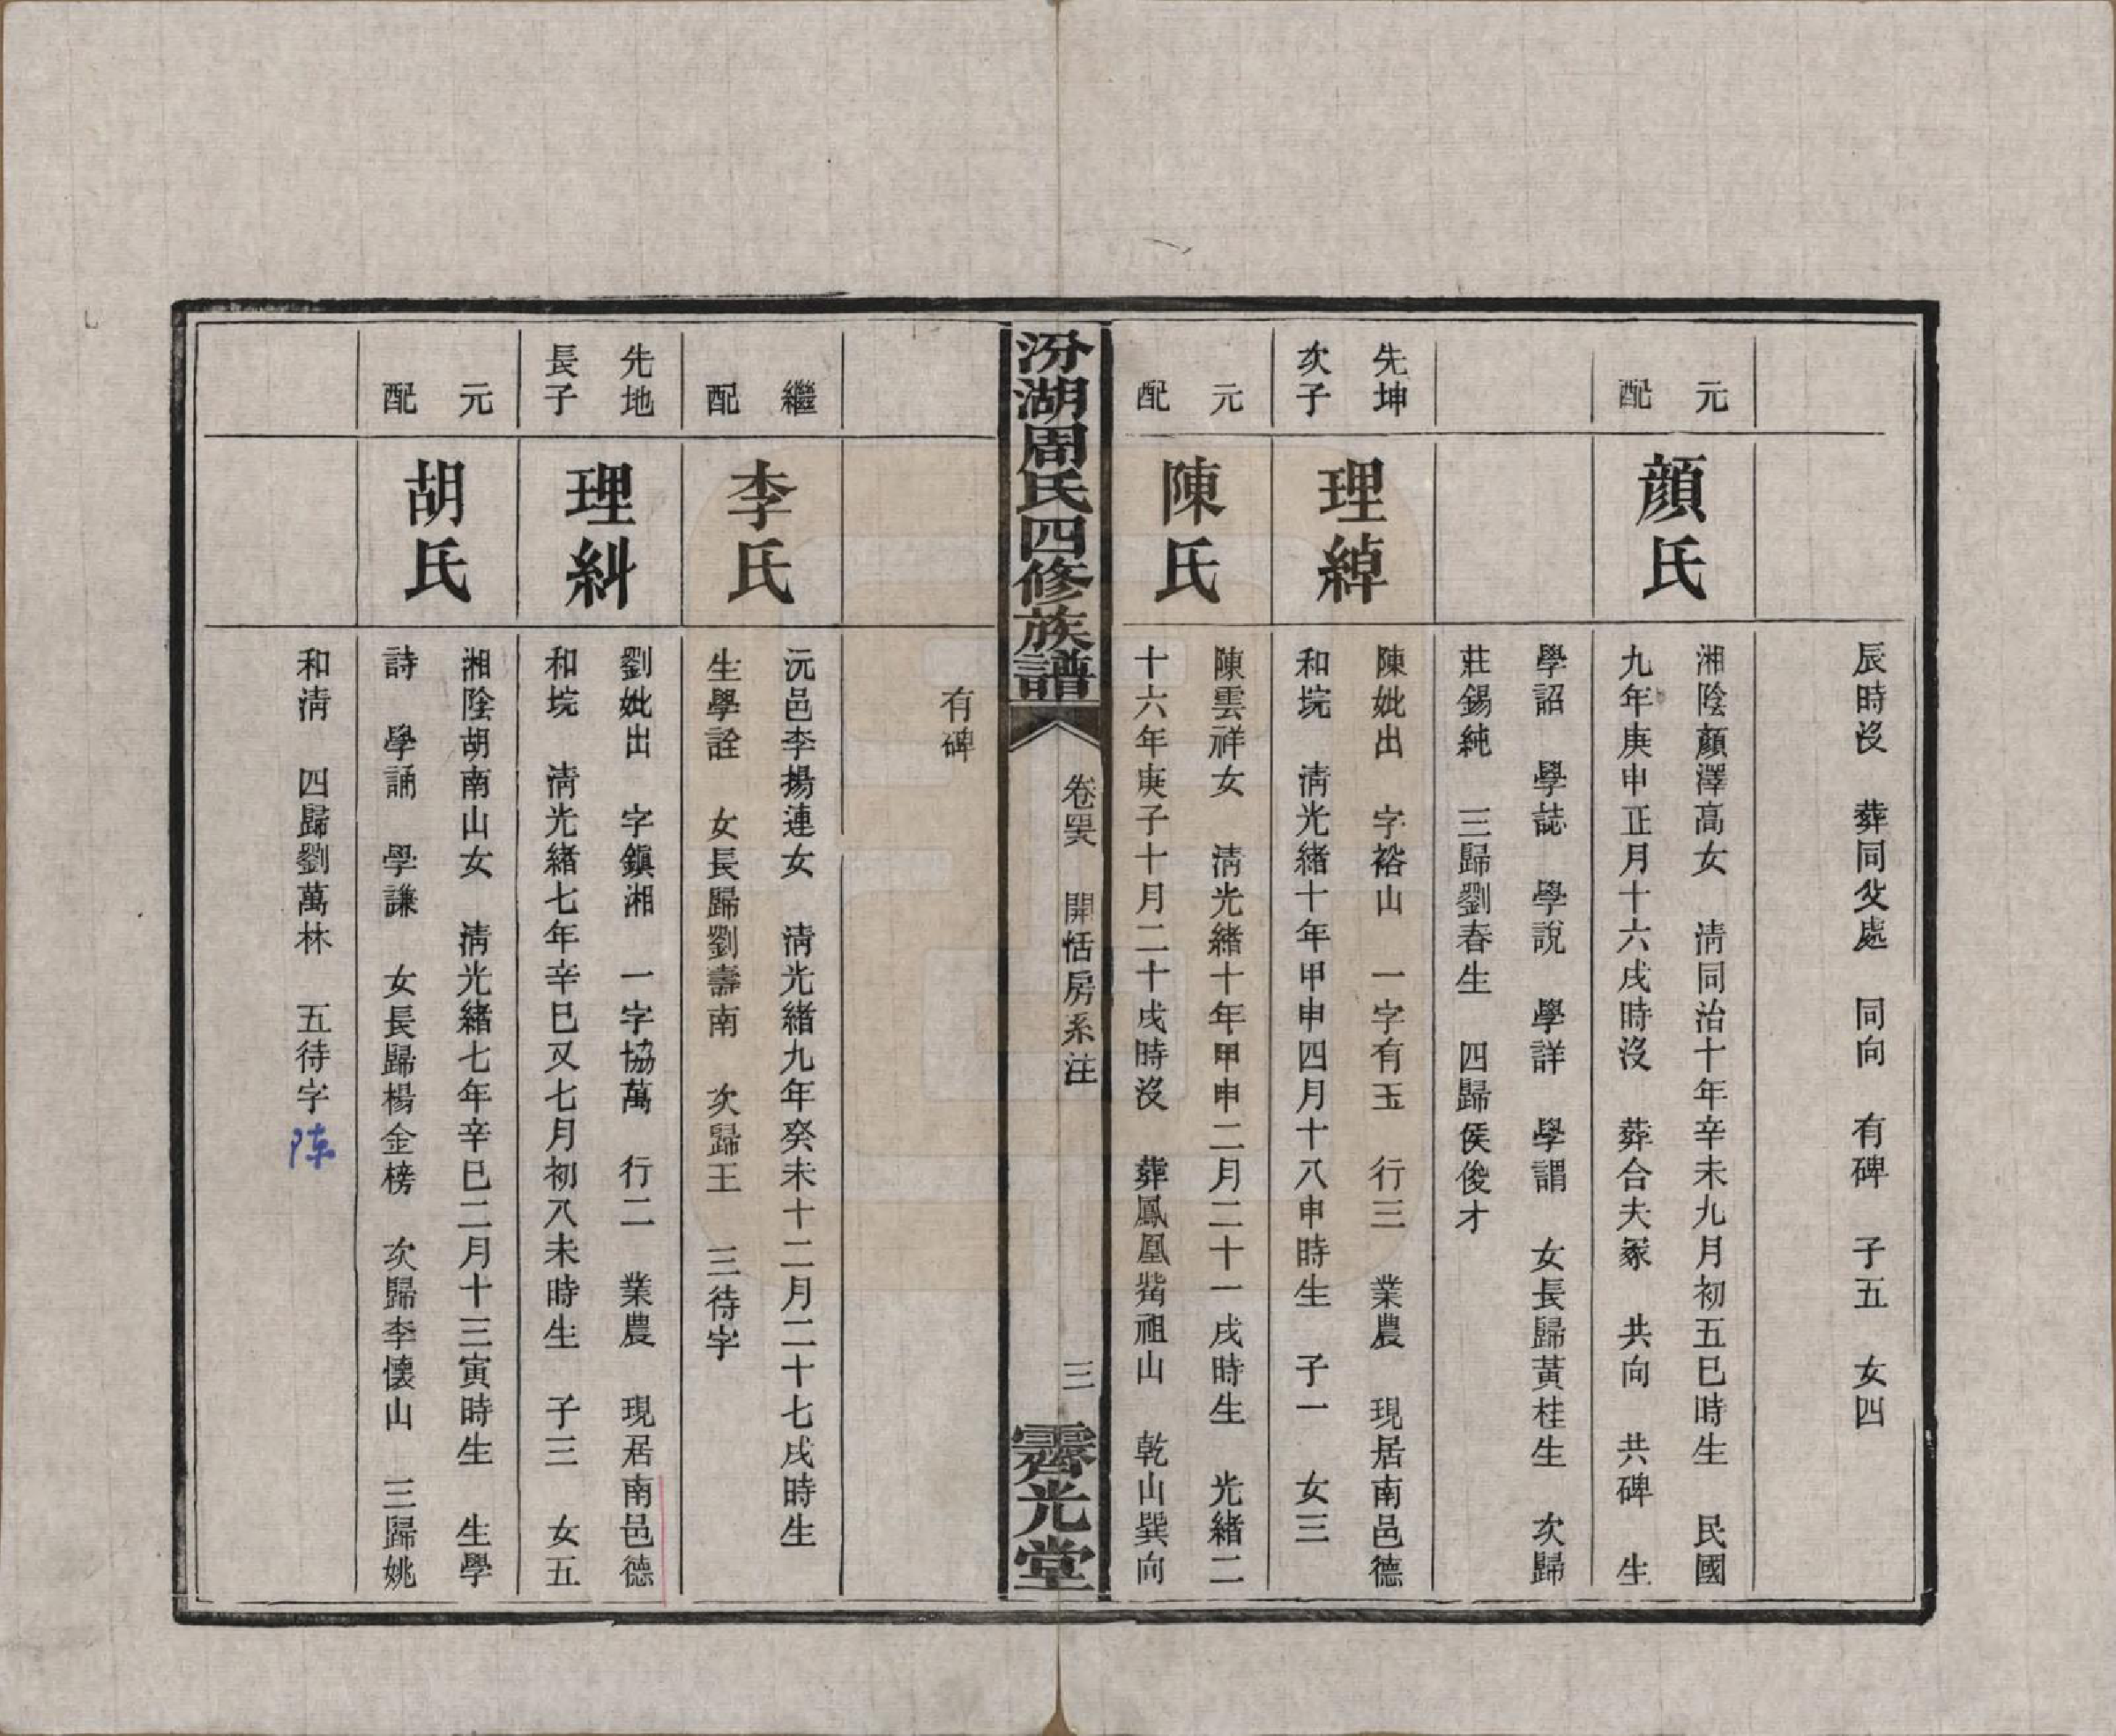 辰時沒　葬同父處　同向　有碑　子五　女四
元配
顏氏
湘陰顏澤高女　清同治十年辛未九月初五巳時生　民國
九年庚申正月十六戌時沒　葬合夫冢　共向　共碑　生
學詔　學誌　學說　學詳　學謂　女長歸黃桂生　次歸
莊錫純　三歸劉春生　四歸侯俊才
先坤次子
理綽
陳妣出　字裕山　一字有玉　行三　業農　現居南邑德
和垸　清光緒十年甲申四月十八申時生　子一　女三
元配
陳氏
陳雲祥女　清光緒十年甲申二月二十一戌時生　光緒二
十六年庚子十月二十戌時沒　葬鳳凰嘴祖山　乾山巽向
汾湖周氏四修族譜
卷　開恬房系注
三
霽光堂
有碑
繼配
李氏
沅邑李揚連女　清光緒九年癸未十二月二十七戌時生
生學詮　女長歸劉壽南　次歸王　三待字
先地長子
理糾
劉妣出　字鎮湘　一字協萬　行二　業農　現居南邑德
和垸　清光緒七年辛巳又七月初八未時生　子三　女五
元配
胡氏
湘陰胡南山女　清光緒七年辛巳二月十三寅時生　生學
詩　學誦　學謙　女長歸楊金榜　次歸李懷山　三歸姚
和清　四歸劉萬林　五待字
陈